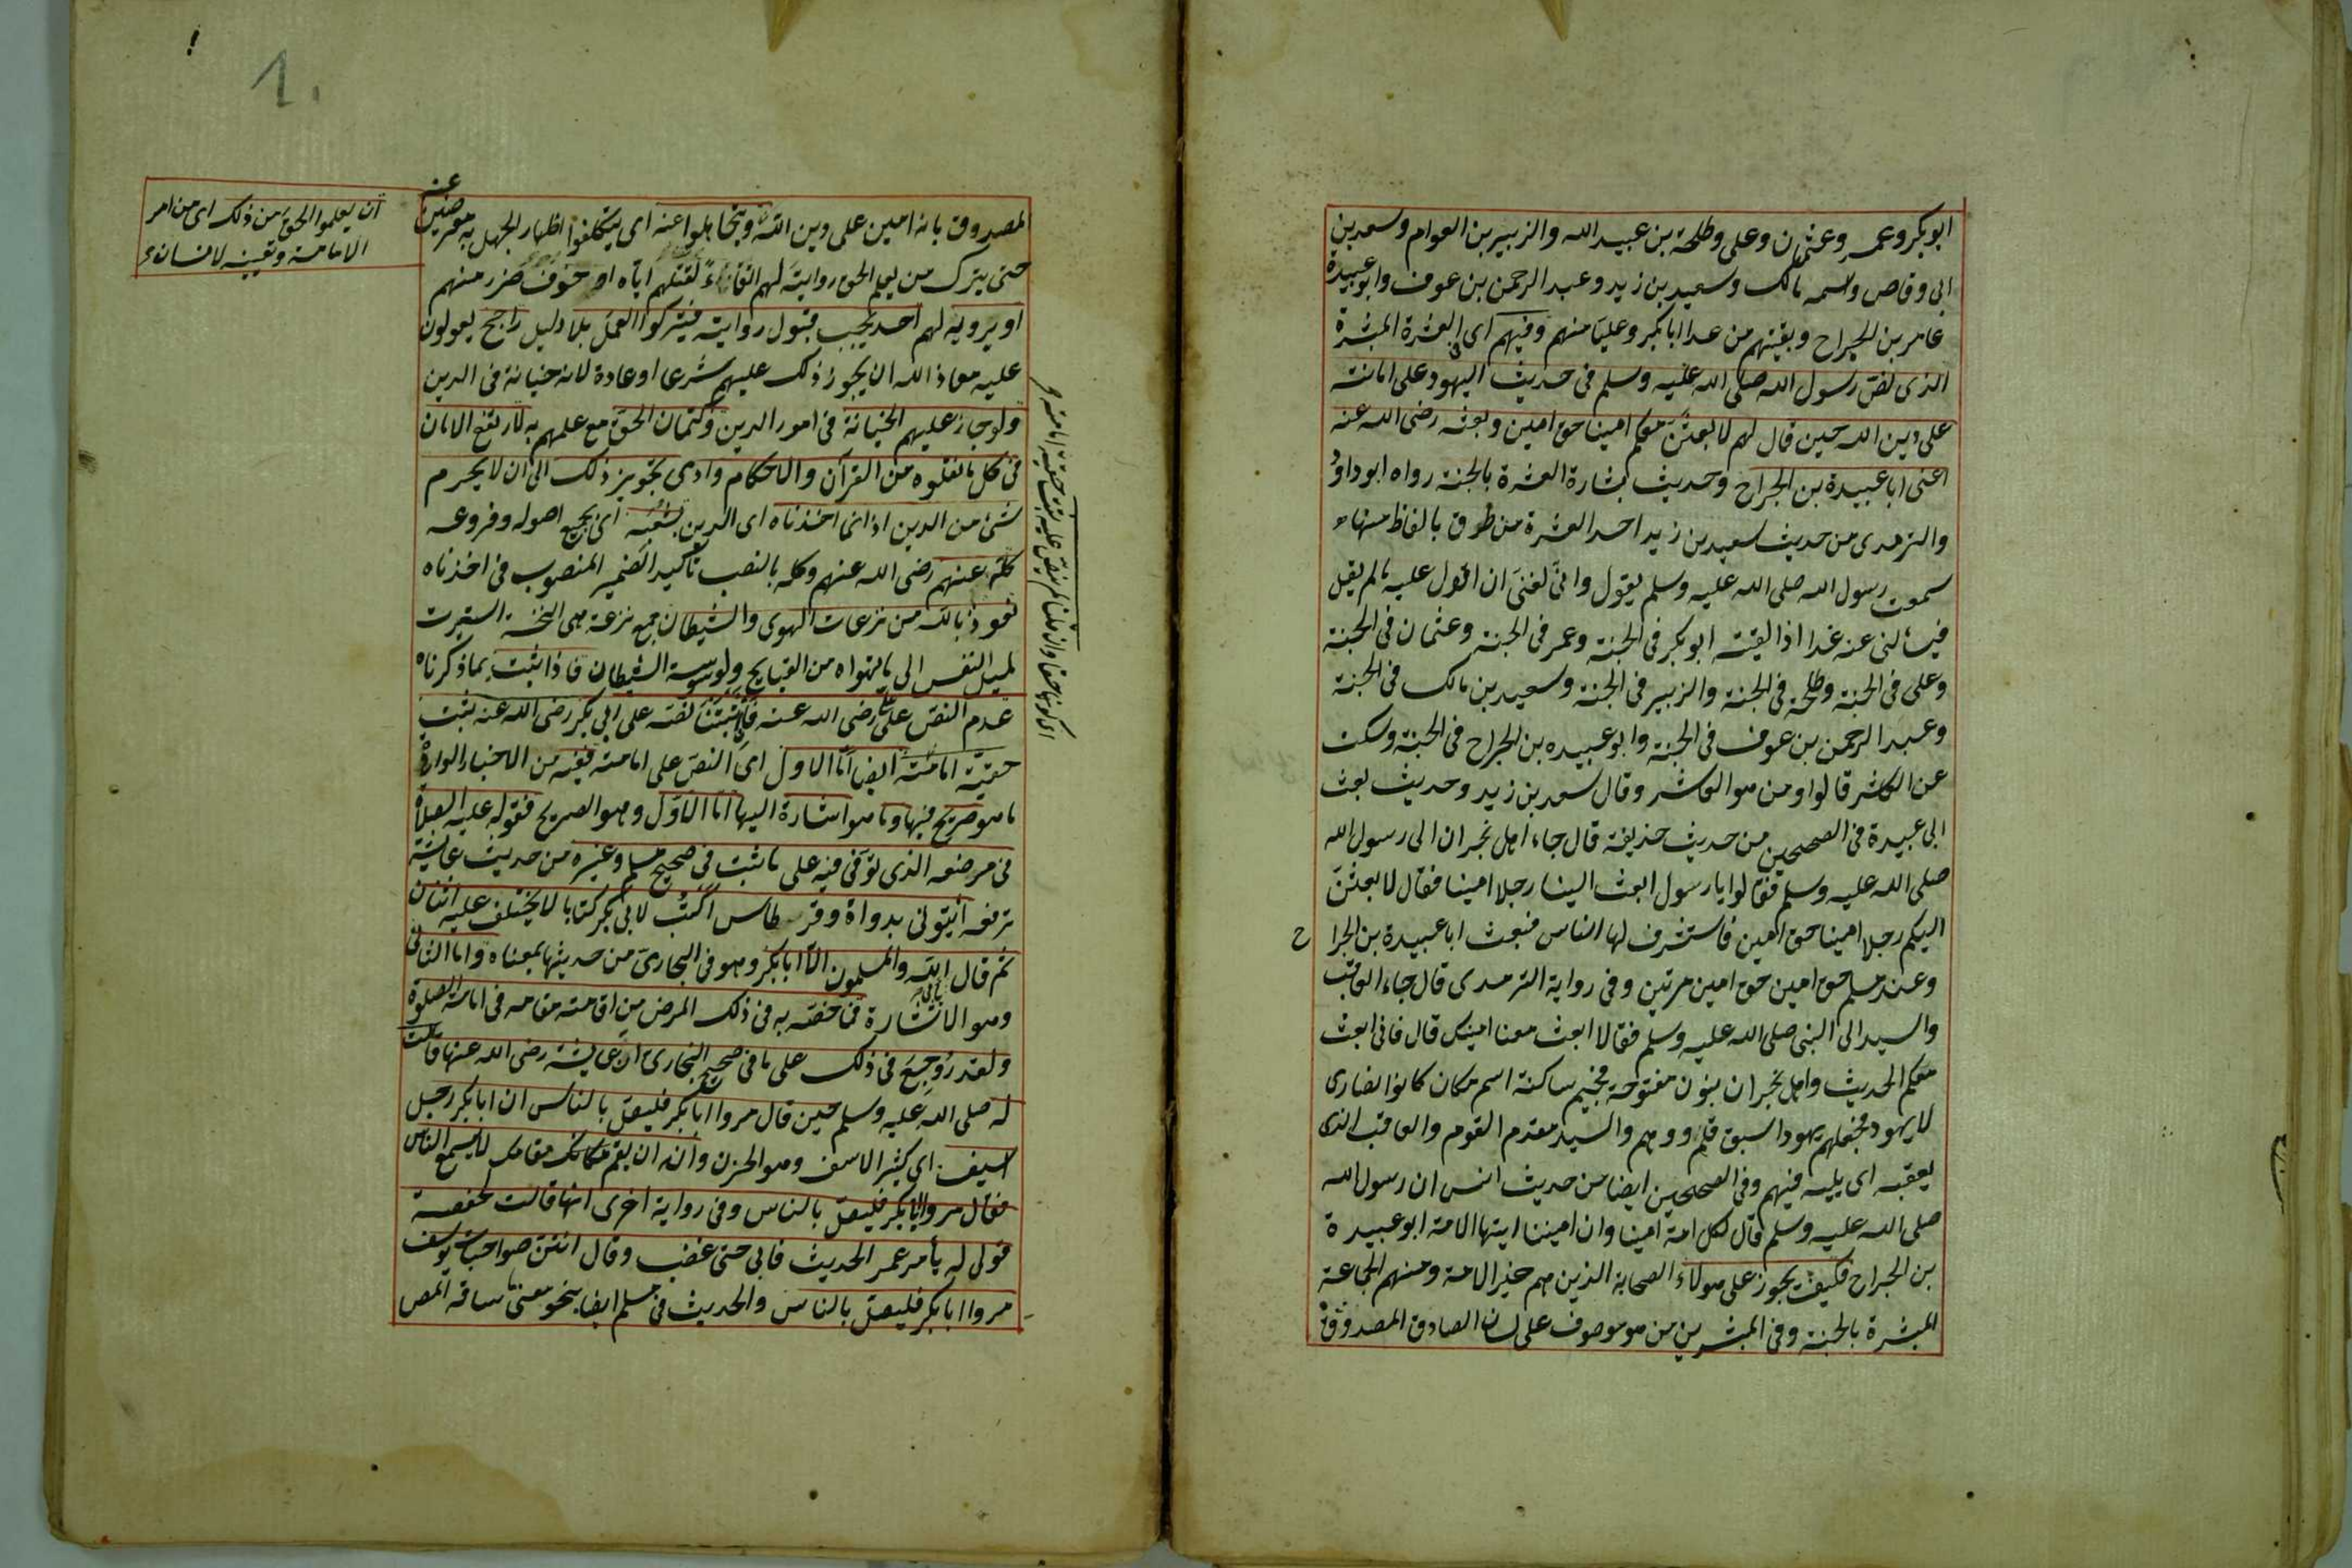 ابوبكر وعمر وعثمان وعلى وطلحة بن عبيد الله والزبير بن العوام وسعد بن
ابى وقاص واسمه مالك وسعيد بن زيد وعبد الرحمن بن عوف وابو عبيدة
عامر بن الجراح وبقيتهم من عدا ابا بكر وعليا منهم وفيهم اى العشرة المبشرة
الذى نص رسول الله صلى الله عليه وسلم فى حديث اليهود على امانته
على دين الله حين قال لهم لابعثن معكم امينا حق امين وبعث رضى الله عنه
اعنى ابا عبيدة بن الجراح وحديث بشارة العشرة بالجنة رواه ابو داؤد
والترمدى من حديث سعيد بن زيد احد العشرة من طرق بالفاظ منها
سمعت رسول الله صلى الله عليه وسلم يقول وانى لغنى ان اقول عليه مالم يقل
فيسألنى عنه غدا اذا لقيته ابو بكر فى الجنة وعمر فى الجنة وعثمان فى الجنة
وعلى فى الجنة وطلحة فى الجنة والزبير فى الجنة وسعيد بن مالك فى الجنة
وعبد الرحمن بن عوف فى الجنة وابو عبيده بن الجراح فى الجنة وسكت
عن العاشر قالوا ومن هو العاشر وقال سعد بن زيد وحديث بعث
ابى عبيدة فى الصحيحين من حديث حذيفة قال جاء اهل نجران الى رسول الله
صلى الله عليه وسلم فقالوا يا رسول ابعث الينا رجلا امينا فقال لابعثن
اليكم رجلا امينا حق امين فاستشرف لها الناس فبعث ابا عبيدة بن الجرا ح
وعند مسلم حق امين حق امين مرتين وفى رواية الترمدى قال جاء العاقب
والسيد الى النبى صلى الله عليه وسلم فقالا ابعث معنا امينك قال فانى ابعث
معكم الحديث واهل نجران بنون مفتوحة فجيم ساكنة اسم مكان كانوا نصارى
لا يهود فجعلهم يهودا سبق قلم ووهم والسيد مقدم القوم والعاقب الذى
يعقبه اى يليه فيهم وفى الصحيحين ايضا من حديث انس ان رسول الله
صلى الله عليه وسلم قال لكل امة امينا وان اميننا ايتها الامة ابو عبيدة
بن الجراح فكيف يجوز على هولاء الصحابة الذين هم خير الامة ومنهم الجماعة
المبشرة بالجنة وفى المبشرين من هو موصوف على لسان الصادق المصدوق
1.
المصدوق بانه امين على دين الله ويتجاهلوا عنه اى يتكلفوا اظهار الجهل به معرضين عنه
ان يعلموا الحق من ذلك اى من امر
الامامة وتعينه لانسان
حتى يترك من يعلم الحق روايته لهم اتقاء لقتلهم اياه او خوف ضرر منهم
او يرويه لهم احد يجب قبول روايته فيتركوا العمل بلا دليل راجح يعولون
عليه معاذ الله ان يجوز ذلك عليهم شرعا او عادة لانه خيانة فى الدين
ولو جاز عليهم الخيانة فى امور الدين وكتمان الحق مع علمهم به لارتفع الامان
فى كل ما نقلوه من القرآن والاحكام وادى تجويز ذلك الى ان لا يجزم
شئ من الدين اذ انما اخذناه اى الدين بشعبه اى بجميع اصوله وفروعه
كله عنهم رضى الله عنهم وكله بالنصب تأكيد الضمير المنصوب فى اخذناه
نعوذ بالله من نزعات الهوى والشيطان جمع نزعة هى النخسة استعيرت
لميل النفس الى ما تهواه من القبايح ولوسوسة الشيطان فاذا ثبت بما ذكرناه
عدم النص على على رضى الله عنه فان اثبتنا نصه على ابى بكر رضى الله عنه ثبت
حقية امامته ايضا اما الاول اى النص على امامته ففيه من الاخبار الواردة
ما هو صريح فيها وما هو اشارة اليها اما الاول وهو الصريح فقوله عليه الصلاة
فى مرضه الذى توفى فيه على ما ثبت فى صحيح مسلم وغيره من حديث عائشة
ترفعه ائيتونى بدواة وقرطاس اكتب لابى بكر كتابا لا يختلف عليه اثنان
ثم قال يابى الله والمسلمون الا ابا بكر وهو فى البخارى من حديثها بمعناه واما الثانى
وهو الاشارة فما خصه به فى ذلك المرض من اقامته مقامه فى امامة الصلوة
ولقد روجع فى ذلك على ما فى صحيح البخارى ان عائشة رضى الله عنها قالت
له صلى الله عليه وسلم حين قال مروا ابا بكر فليصل بالناس ان ابا بكر رجل
اسيف اى كثير الاسف وهو الحزن وانه ان يقم مكانك مقامك لا يسمع الناس
فقال مروا ابا بكر فليصل بالناس وفى رواية اخرى انها قالت لحفصة
قولى له يأمر عمر الحديث فابى حتى غضب وقال انتن صواحبات يوسف
مروا ابا بكر فليصل بالناس والحديث فى مسلم ايضا بنحو معنى ما ساقه المص